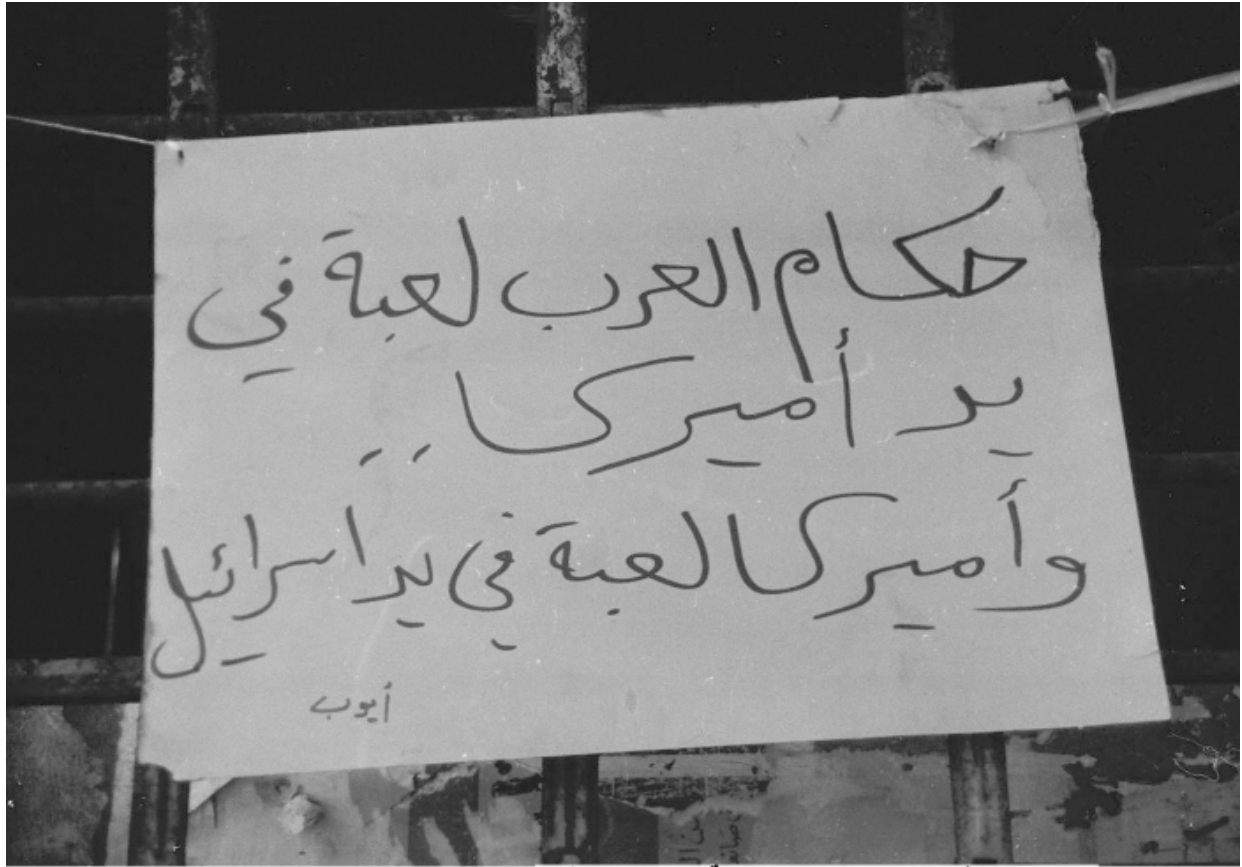 حكام العرب لعبة في
يد أميركا ..
وأميركا لعبة في يد اسرائيل
أيوب